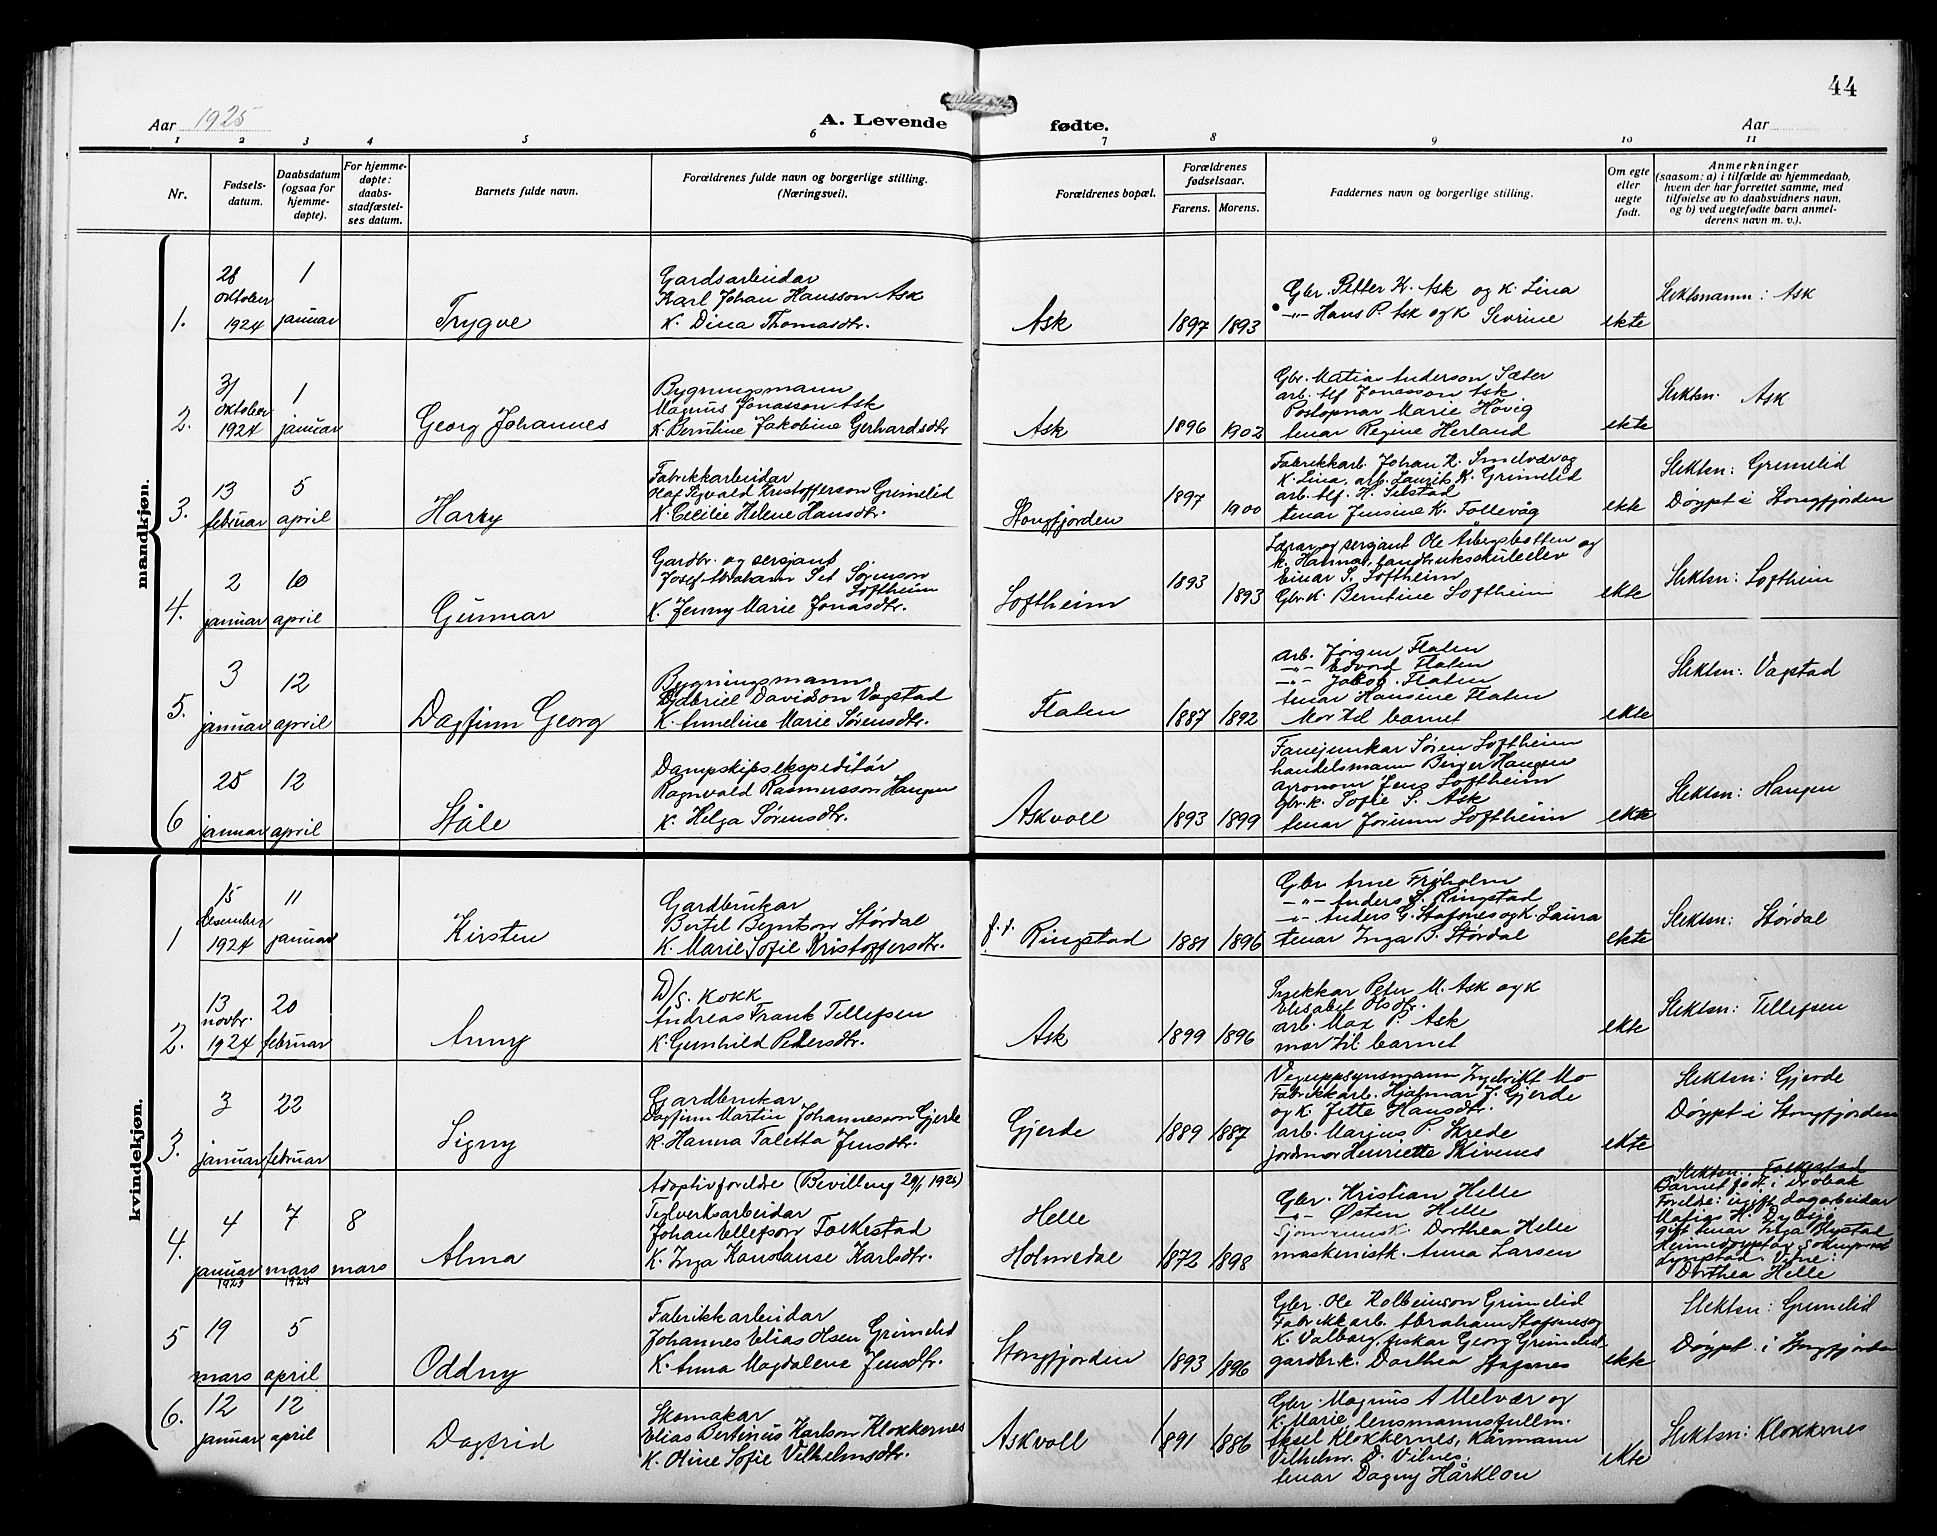 44
Aar 1925
A. Levende fødte.
Aar
1 2 3 4 5 6 7 8 9 10 11
Nr.
Fødsels-
datum.
Daabsdatum
(ogsaa for
hjemme-
døpte).
For hjemme-
døpte:
daabs-
stadfæstel-
ses datum.
Barnets fulde navn.
Forældrenes fulde navn og borgerlige stilling.
(Næringsvei).
Forældrenes bopæl.
Forældrenes
fødselsaar.
Farens. Morens.
Faddernes navn og borgerlige stilling.
Om egte
eller
uegte
født.
Anmerkninger
(saasom: a) i tilfælde av hjemmedaab,
hvem der har forrettet samme, med
tilføielse av to daabsvidners navn,
og b) ved uegtefødte barn anmel-
derens navn m. v.).
mandkjøn.
1.
28
oktober
1924
1
januar
Trygve
Gardsarbeidar
Karl Johan Hansson Ask
K. Dina Thomasdtr.
Ask
1897 1893
Gbr. Petter K. Ask og k. Lina
-"- Hans P. Ask og k Sevrine
ekte
Slektsnamn: Ask
2.
31
oktober
1924
1
januar
Georg Johannes
Bygningsmann
Magnus Jonasson Ask
K. Berntine Jakobine Gerhardsdtr
Ask
1896 1902
Gbr. Matias Anderson Sæter
arb. Alf Jonasson Ask
Postopnar Marie Høvig
tenar Regine Herland
ekte
Slektsn: Ask
3.
13
februar
5
april
Harry
Fabrikkarbeidar
Olaf Sigvald Kristofferson Grimelid
K. Cecilie Helene Hansdtr.
Stongfjorden
1897 1900
Fabrikkarb. Johan K. Smelvær og
K. Lina, arb. Laurits K. Grimelid
arb. Alf. H. Silstad
tenar Jensine K. Follevåg
ekte
Slektsn: Grimelid
Døypt i Stongfjorden
4.
2
januar
10
april
Gunnar
Gardbr. og sersjant
Josef Abraham Set Sørenson
Loftheim
K. Jenny Marie Jonasdtr.
Loftheim
1893 1893
Lærar og sersjant Ole Arbergsbotten og
k. Hanna, landbrukskuleelev
Einar S. Loftheim
Gbr.k. Berntine Loftheim
ekte
Slektsn: Loftheim
5.
3
januar
12
april
Dagfinn Georg
Bygningsmann
Gabriel Davidson Vagstad
K. Anneline Marie Sørensdtr.
Flaten
1887 1892
arb. Jørgen Flaten
-"- Edvard Flaten
-"- Jakob Flaten
tenar Hansine Flaten
Mor til barnet
ekte
Slektsn: Vagstad
6
25
januar
12
april
Ståle
Dampskipsekspeditør
Ragnvald Rasmusson Haugen
K. Helga Sørensdtr.
Askvoll
1893 1899
Fanejunkar Søren Loftheim
handelsmann Birger Haugen
agronom Jens Loftheim
gbr.k. Sofie S. Ask
tenar Jorunn Loftheim
ekte
Slektsn: Haugen
kvindekjøn.
1
15
desember
1924
11
januar
Kirsten
Gardbrukar
Bertel Berntson Størdal
K. Marie Sofie Kristoffersdtr.
f.t. Ringstad
1881 1896
Gbr Arne Frøholm
-"- Anders S. Ringstad
-"- Anders G. Stafsnes og k. Laura
tenar Inga B. Størdal
ekte
Slektsn: Størdal
2.
13
novbr.
1924
20
februar
Anny
D/S. kokk
Andreas Frank Tellefsen
K. Gunhild Pedersdtr.
Ask
1899 1896
Snekkar Peter M. Ask og k
Elisabet Olsdtr.
arb. Max P. Ask
mor til barnet
ekte
Slektsn: Tellefsen
3.
3
januar
22
februar
Signy
Gardbrukar
Dagfinn Martin Johanneson Gjerde
K. Hanna Taletta Jensdtr.
Gjerde
1889 1887
Veguppsynsmann Ingebrikt Mo
Fabrikkarb. Hjalmar J. Gjerde
og k. Jette Hansdtr.
arb. Marius P. Skrede
jordmor Henriette Skivenes
ekte
Slektsn: Gjerde
Døypt i Stongfjorden
4.
4
januar
1923
7
mars
1924
8
mars
Alma
Adoptivforeldre (Bevilling 29/1 1925)
Teglverksarbeidar
Johan Ellefson Folkestad
K. Inga Konstanse Karlsdtr.
Helle
Holmedal
1872 1898
Gbr. Kristian Helle
-"- Østen Helle
Dorthea Helle
maskenistk. Anna Larsen
Slektsn: Folkestad
Barnet født i Drøbak
Forelde: ugift dagarbeidar
Dorthea Helle
5
19
mars
5
april
Oddny
Fabrikkarbeidar
Johannes Elias Olsen Grimelid
K. Anna Magdalene Jensdtr.
Stongfjorden
1893 1896
Gbr. Ole Kolbeinson Grimelid
Fabrikkarb. Abraham Stafsnes og
K. Valborg, fiskar Georg Grimelid
gardbr.k. Dorthea Stafsnes
ekte
Slektsn: Grimelid
Døypt i Stongfjorden
6.
12
januar
12
april
Dagtrid
Skomakar
Elias Bertinius Karlson Klokkernes
K. Oline Sofie Vilhelmsdtr.
Askvoll
1891 1886
Gbr. Magnus A Melvær og
K. Marie, lensmannsfullm.
Aksel Klokkernes, Kårmann
Vilhelm D. Vilnes;
tenar Dagny Hårklau
ekte
Slektsn: Klokkernes